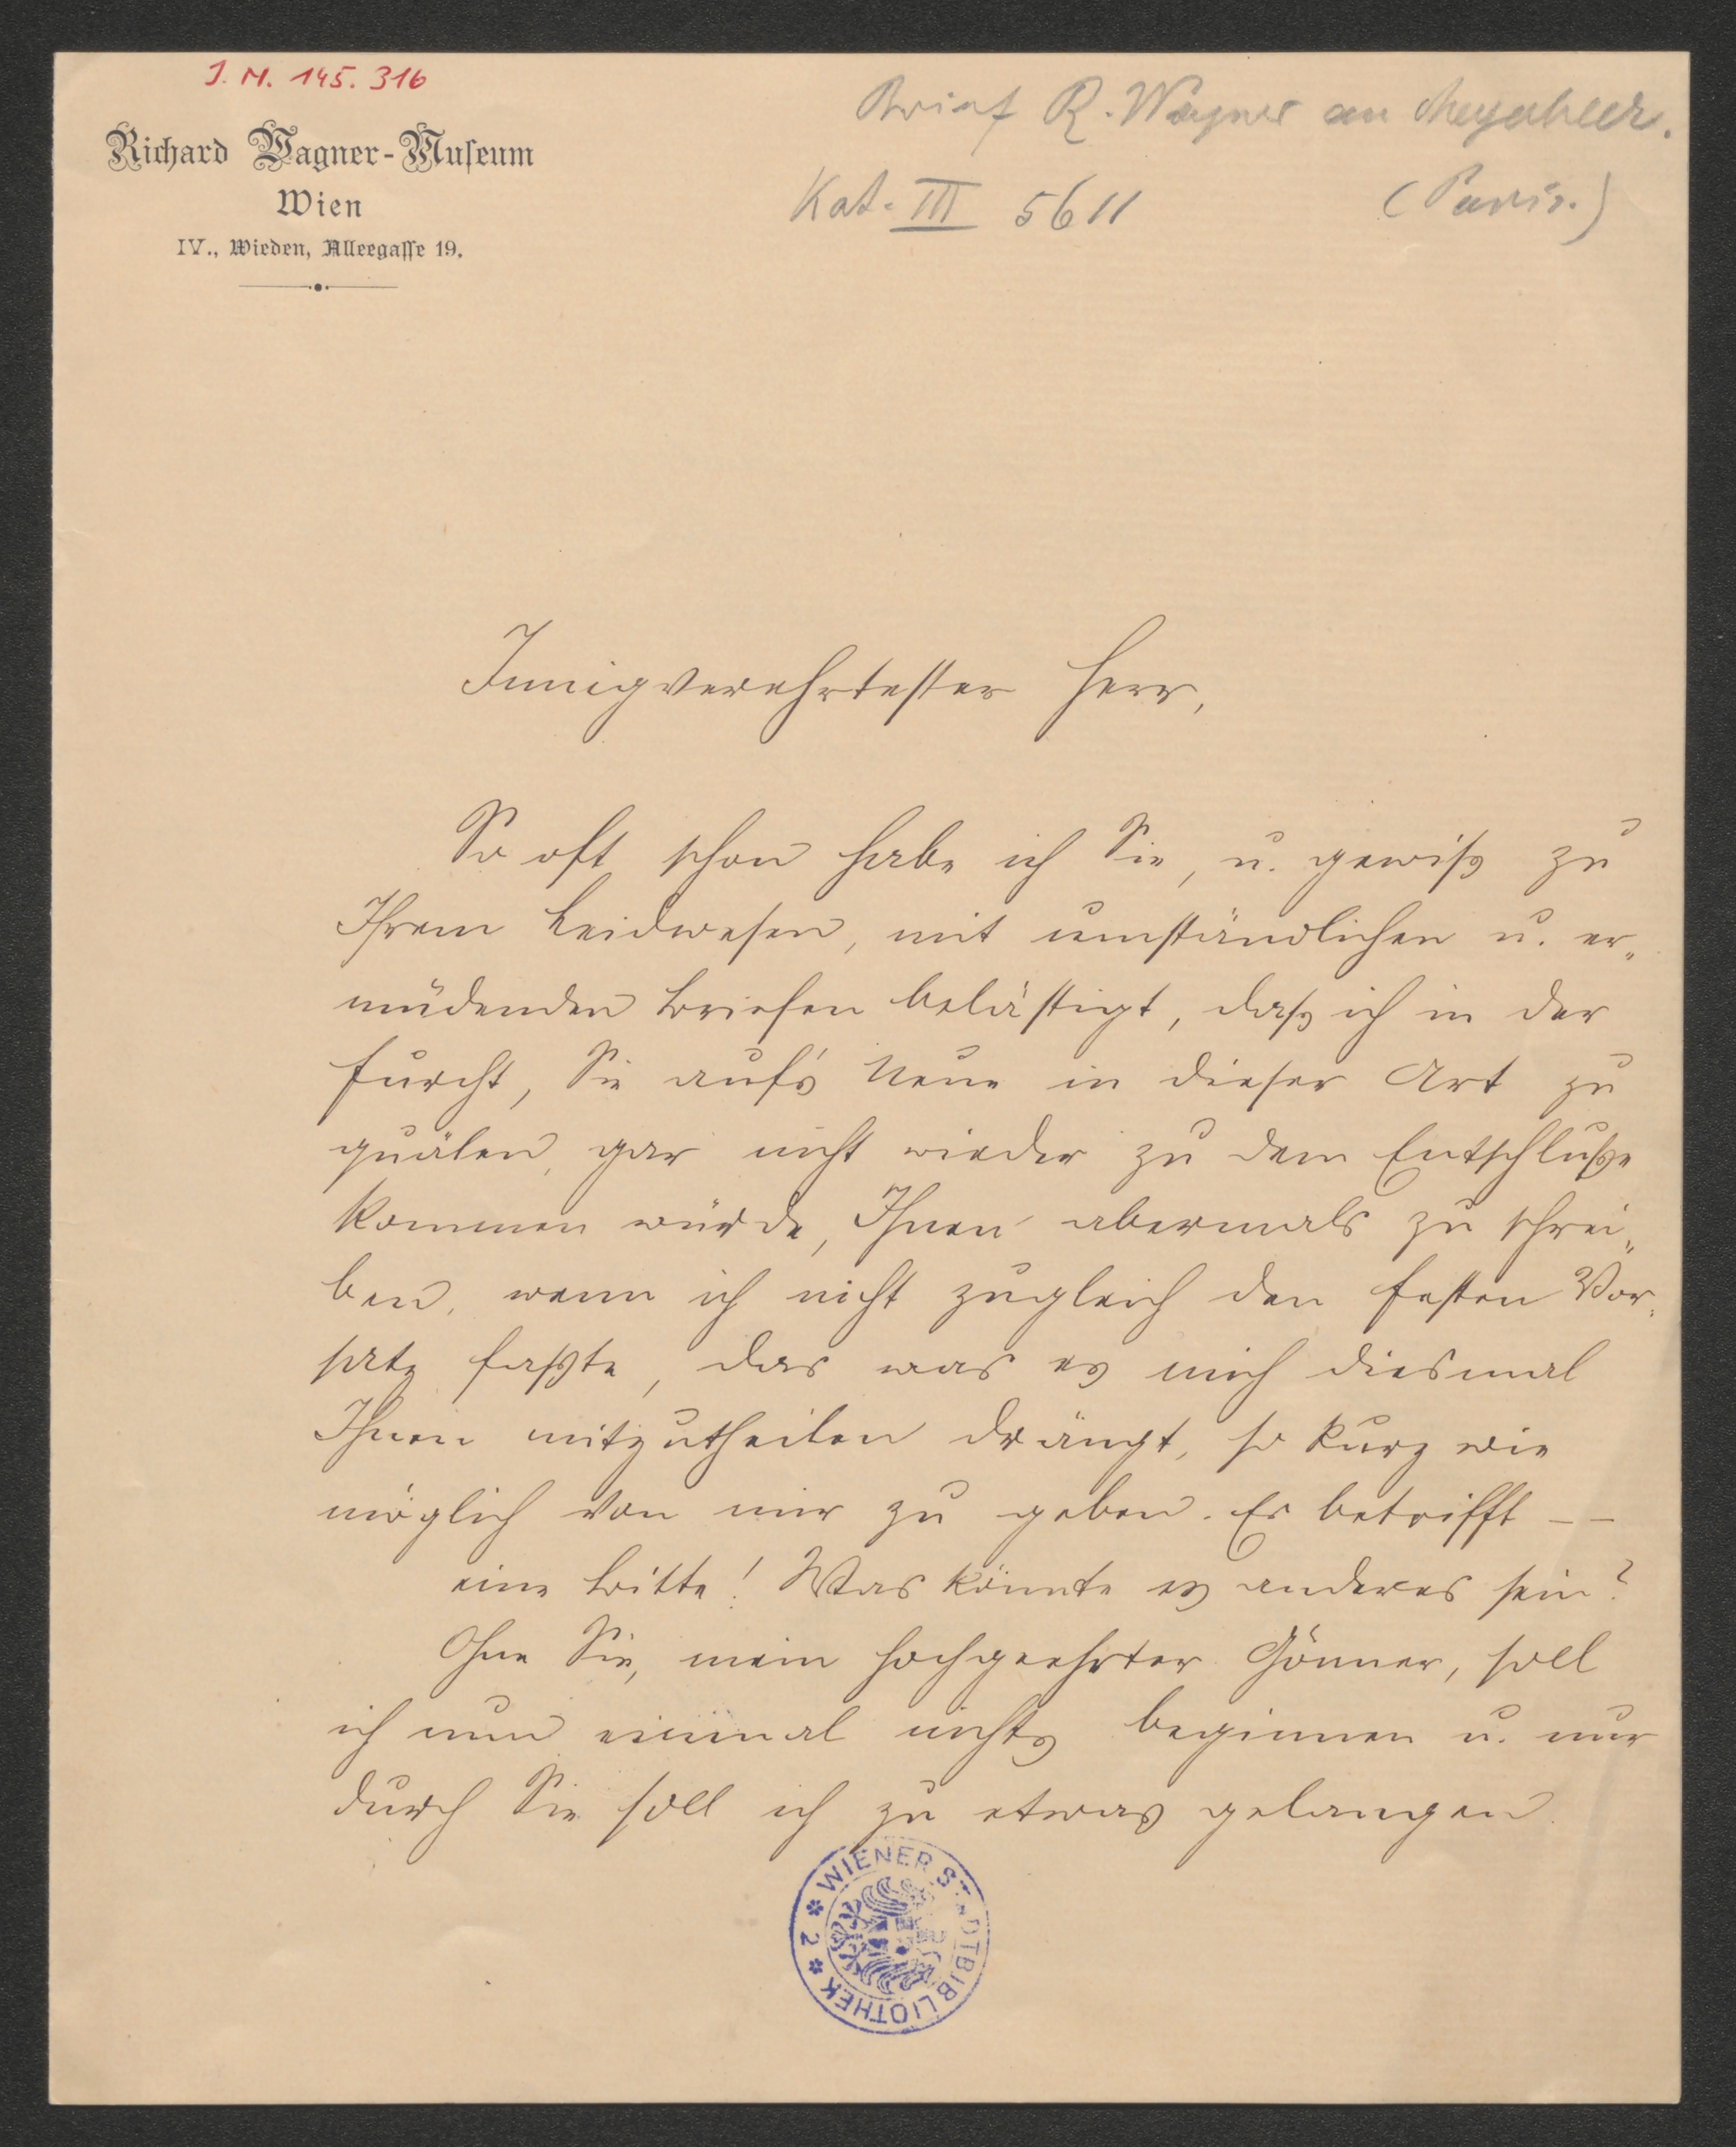 J. N. 145.316
Brief R. Wagner an Meyerbeer.
Richard Wagner-Museum
Kat. III 5611 (Paris.)
Wien
IV., Wieden, Alleegasse 19.
Innigverehrtester Herr,
So oft schon habe ich Sie, u. gewiß zu
Ihrem Leidwesen, mit umständlichen u. er„
müdenden Briefen belästigt, daß ich in der
Furcht, Sie auf's Neue in dieser Art zu
quälen, gar nicht wieder zu dem Entschluße
kommen würde, Ihnen abermals zu schrei„
ben, wenn ich nicht zugleich den festen Vor„
satz faßte, das was es mich diesmal
Ihnen mitzutheilen drängt, so kurz wie
möglich von mir zu geben. Es betrifft – –
eine Bitte! Was könnte es anderes sein?
Ohne Sie, mein hochgeehrter Gönner, soll
ich nun einmal nichts beginnen u. nur
durch Sie soll ich zu etwas gelangen.
WIENER STADTBIBLIOTHEK * 2 *